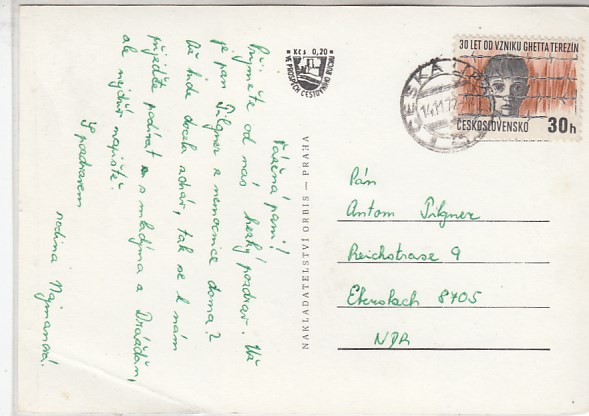 Vážená paní!
Přijměte od nás hezký pozdrav. Už
je pan Pilgner z nemocnice doma?
Až bude docela zdráv, tak se k nám
přijeďte podívat s mladýma z Drážďan,
ale nejdřív napište.
S pozdravem
rodina Najmanová.
Kčs 0,20
VE PROSPĚCH CESTOVNÍHO RUCHU
NAKLADATELSTVÍ ORBIS — PRAHA
30 LET OD VZNIKU GHETTA TEREZÍN
ČESKOSLOVENSKO 30h
ČESKÁ
14.11.72
Pán
Anton Pilgner
Reichstrasse 9
Ebersbach 8705
NDR